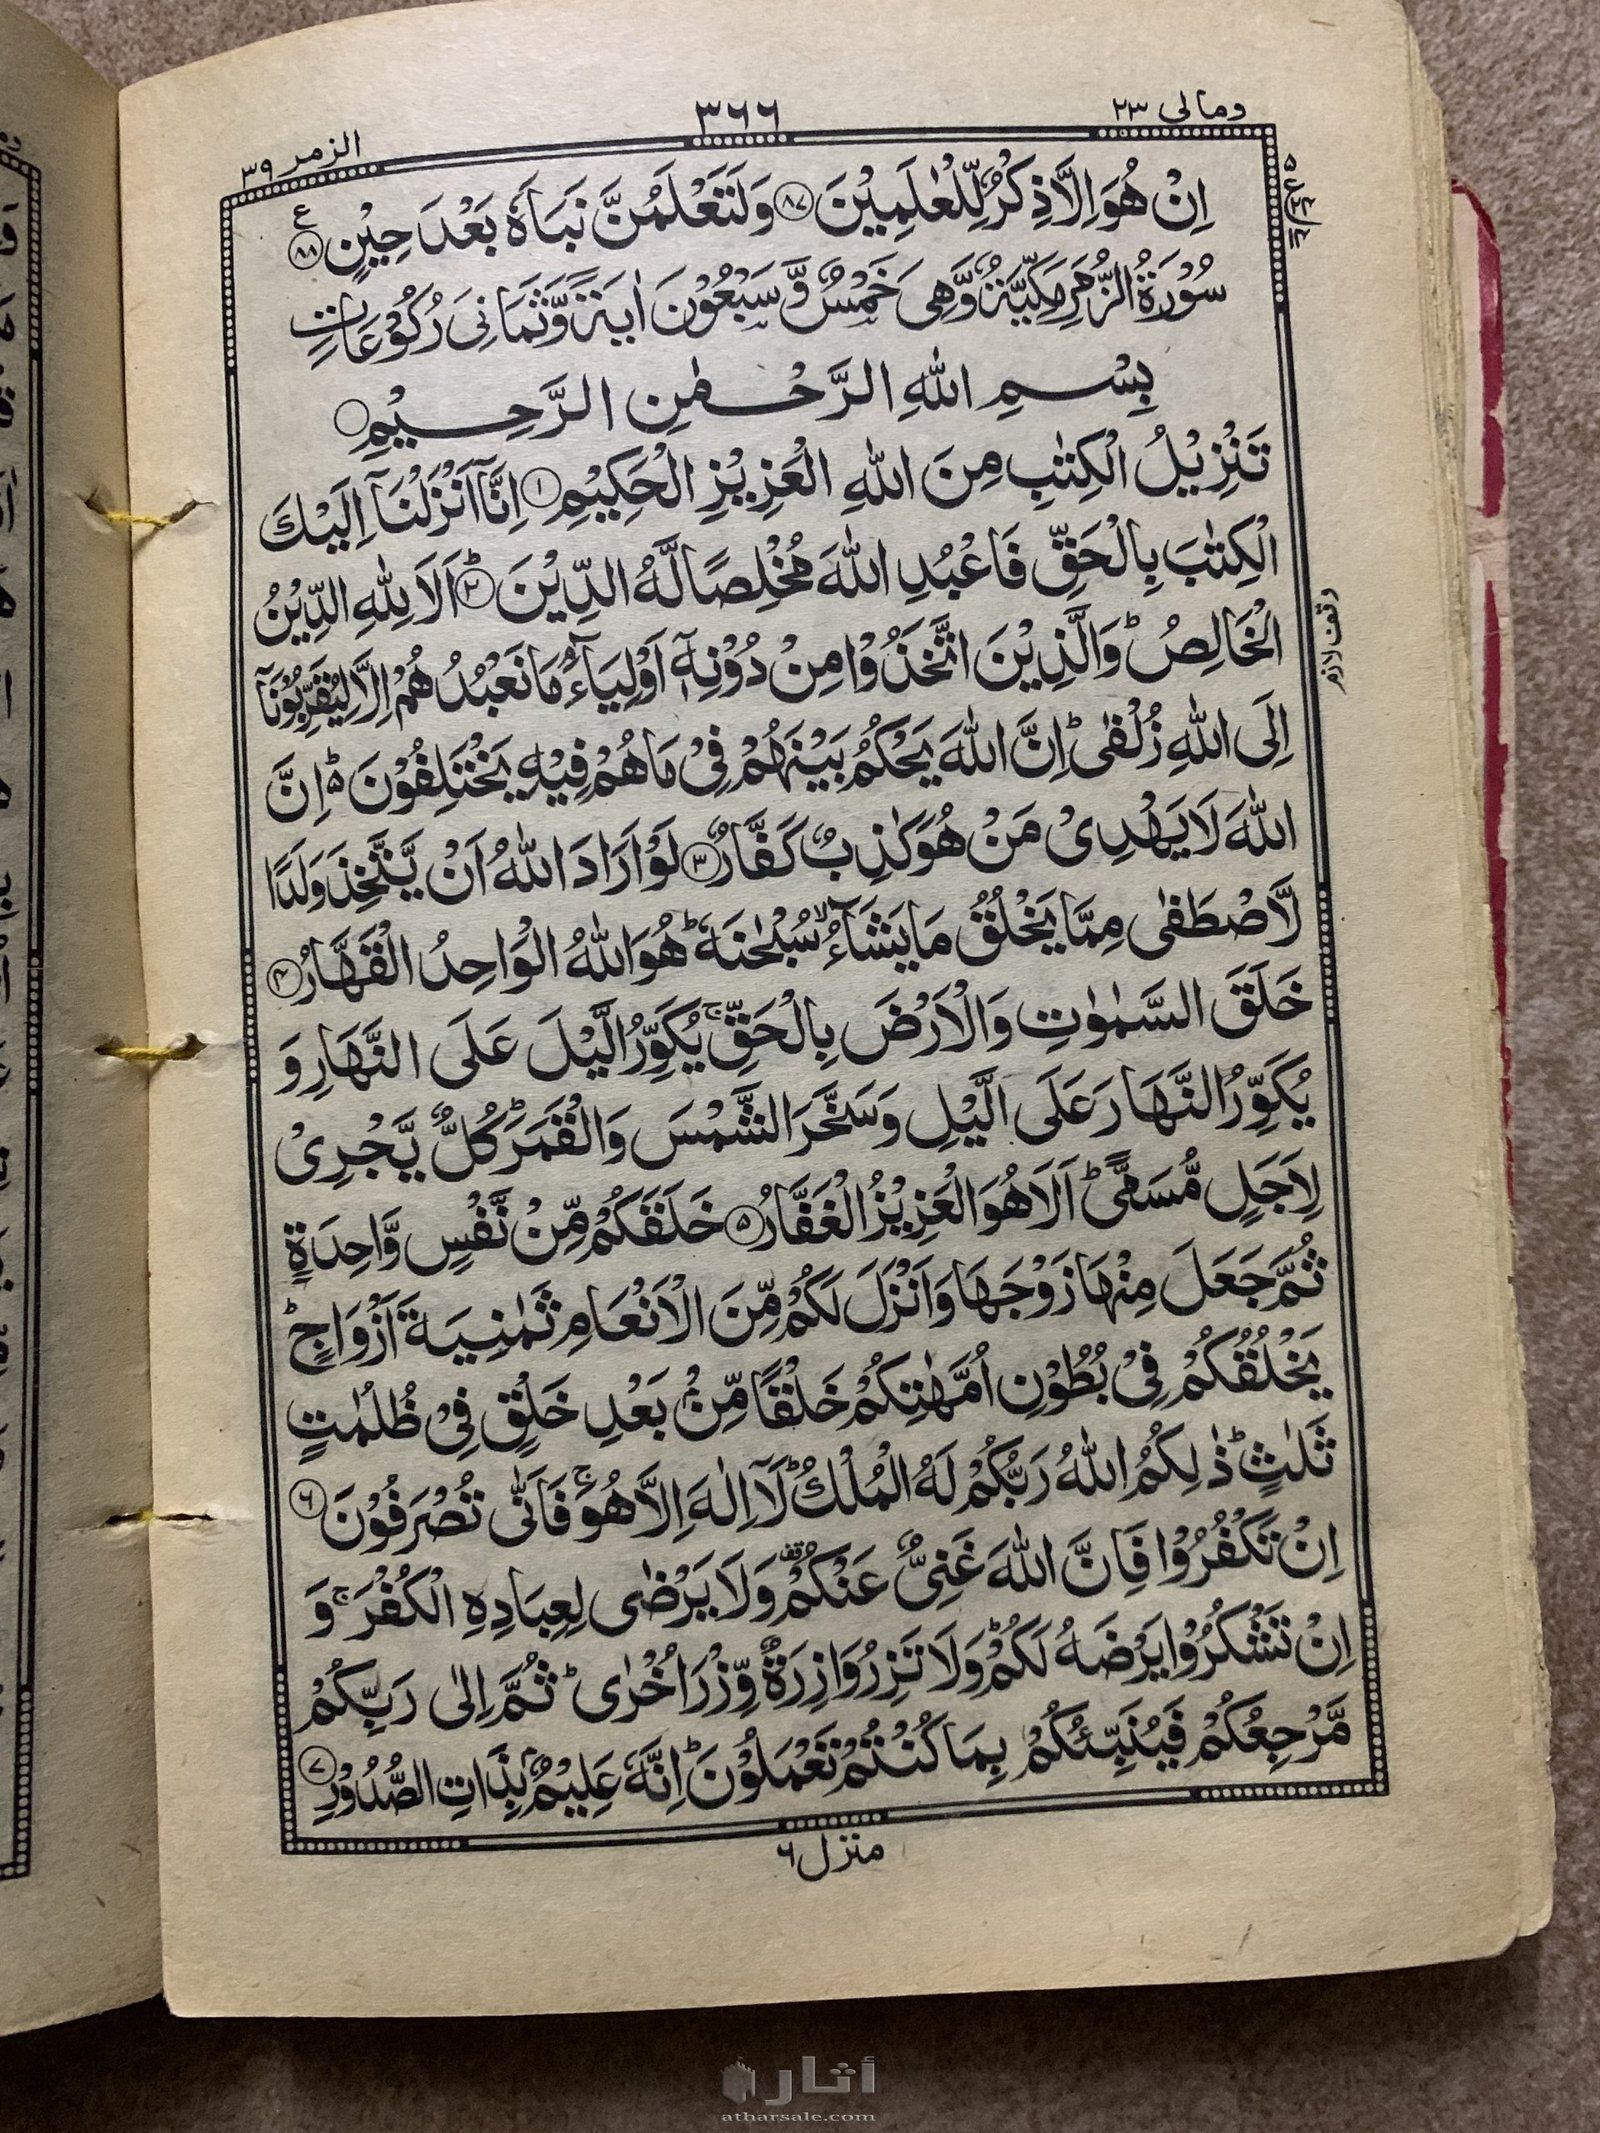 ومالی ٢٣
٣٦٦
الزمر ٣٩
اِنْ هُوَ اِلَّا ذِكْرٌ لِّلْعٰلَمِیْنَ ﴿٨٧﴾ وَلَتَعْلَمُنَّ نَبَاَهٗ بَعْدَ حِیْنٍ ﴿٨٨﴾ ع
سُوْرَةُ الزُّمَرِ مَكِّیَّةٌ وَّهِیَ خَمْسٌ وَّسَبْعُوْنَ اٰیَةً وَّثَمَانِیَ رُكُوْعَاتٍ
بِسْمِ اللّٰهِ الرَّحْمٰنِ الرَّحِیْمِ
تَنْزِیْلُ الْكِتٰبِ مِنَ اللّٰهِ الْعَزِیْزِ الْحَكِیْمِ ﴿١﴾ اِنَّاۤ اَنْزَلْنَاۤ اِلَیْكَ
الْكِتٰبَ بِالْحَقِّ فَاعْبُدِ اللّٰهَ مُخْلِصًا لَّهُ الدِّیْنَ ؕ﴿٢﴾ اَلَا لِلّٰهِ الدِّیْنُ
الْخَالِصُ ؕ وَالَّذِیْنَ اتَّخَذُوْا مِنْ دُوْنِهٖۤ اَوْلِیَآءَ ۘ مَا نَعْبُدُهُمْ اِلَّا لِیُقَرِّبُوْنَاۤ
اِلَی اللّٰهِ زُلْفٰی ؕ اِنَّ اللّٰهَ یَحْكُمُ بَیْنَهُمْ فِیْ مَا هُمْ فِیْهِ یَخْتَلِفُوْنَ ؕ۬ اِنَّ
اللّٰهَ لَا یَهْدِیْ مَنْ هُوَ كٰذِبٌ كَفَّارٌ ﴿٣﴾ لَوْ اَرَادَ اللّٰهُ اَنْ یَّتَّخِذَ وَلَدًا
لَّاصْطَفٰی مِمَّا یَخْلُقُ مَا یَشَآءُ ۙ سُبْحٰنَهٗ ؕ هُوَ اللّٰهُ الْوَاحِدُ الْقَهَّارُ ﴿٤﴾
خَلَقَ السَّمٰوٰتِ وَالْاَرْضَ بِالْحَقِّ ۚ یُكَوِّرُ الَّیْلَ عَلَی النَّهَارِ وَ
یُكَوِّرُ النَّهَارَ عَلَی الَّیْلِ وَسَخَّرَ الشَّمْسَ وَالْقَمَرَ ؕ كُلٌّ یَّجْرِیْ
لِاَجَلٍ مُّسَمًّی ؕ اَلَا هُوَ الْعَزِیْزُ الْغَفَّارُ ﴿٥﴾ خَلَقَكُمْ مِّنْ نَّفْسٍ وَّاحِدَةٍ
ثُمَّ جَعَلَ مِنْهَا زَوْجَهَا وَاَنْزَلَ لَكُمْ مِّنَ الْاَنْعَامِ ثَمٰنِیَةَ اَزْوَاجٍ ؕ
یَخْلُقُكُمْ فِیْ بُطُوْنِ اُمَّهٰتِكُمْ خَلْقًا مِّنْۢ بَعْدِ خَلْقٍ فِیْ ظُلُمٰتٍ
ثَلٰثٍ ؕ ذٰلِكُمُ اللّٰهُ رَبُّكُمْ لَهُ الْمُلْكُ ؕ لَاۤ اِلٰهَ اِلَّا هُوَ ۚ فَاَنّٰی تُصْرَفُوْنَ ﴿٦﴾
اِنْ تَكْفُرُوْا فَاِنَّ اللّٰهَ غَنِیٌّ عَنْكُمْ ۫ وَلَا یَرْضٰی لِعِبَادِهِ الْكُفْرَ ۚ وَ
اِنْ تَشْكُرُوْا یَرْضَهُ لَكُمْ ؕ وَلَا تَزِرُ وَازِرَةٌ وِّزْرَ اُخْرٰی ؕ ثُمَّ اِلٰی رَبِّكُمْ
مَّرْجِعُكُمْ فَیُنَبِّئُكُمْ بِمَا كُنْتُمْ تَعْمَلُوْنَ ؕ اِنَّهٗ عَلِیْمٌۢ بِذَاتِ الصُّدُوْرِ ﴿٧﴾
وقف لازم
منزل ٦
أثار
atharsale.com